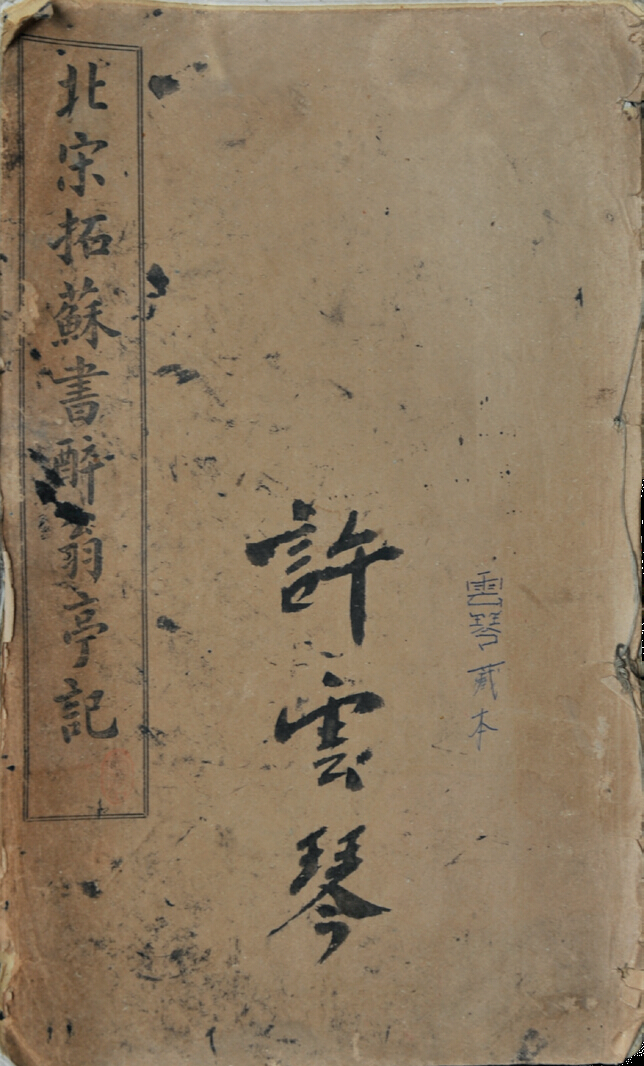 雲琴藏本
許雲琴
北宋拓蘇書醉翁亭記